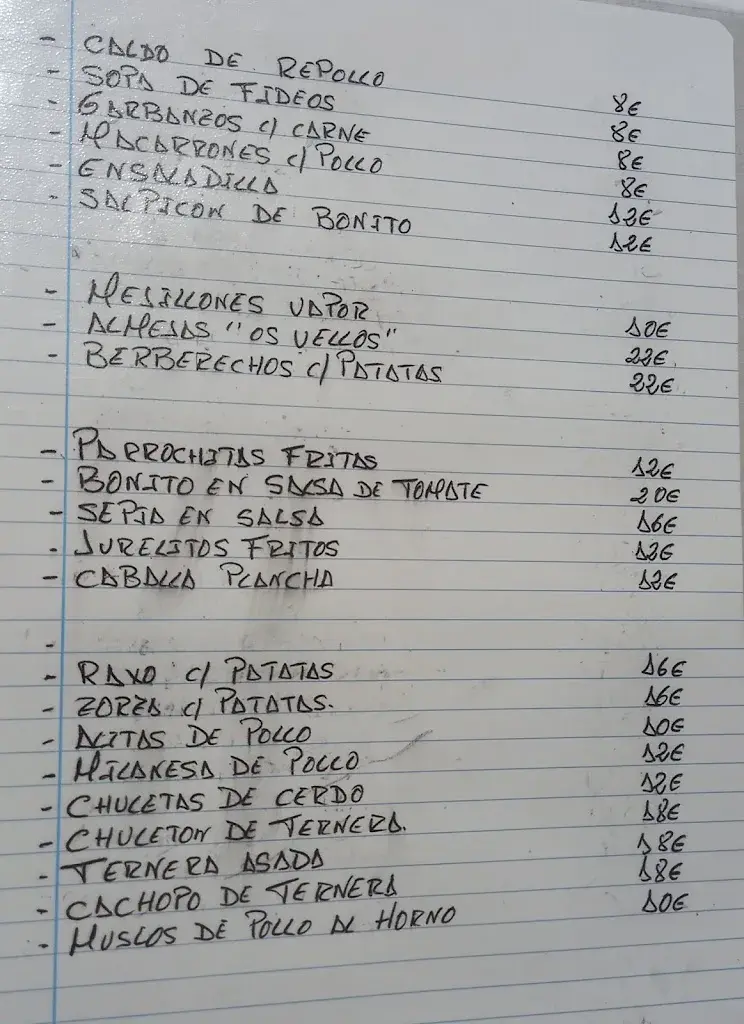 - CALDO DE REPOLLO 8€
- SOPA DE FIDEOS 8€
- GARBANZOS c/ CARNE 8€
- MACARRONES c/ POLLO 8€
- ENSALADILLA 12€
- SALPICON DE BONITO 12€
- MEJILLONES VAPOR 10€
- ALMEJAS "OS VELLOS" 22€
- BERBERECHOS c/ PATATAS 22€
- PARROCHITAS FRITAS 12€
- BONITO EN SALSA DE TOMATE 20€
- SEPIA EN SALSA 16€
- JURELITOS FRITOS 12€
- CABALLA PLANCHA 12€
-
- RAXO c/ PATATAS 16€
- ZORZA c/ PATATAS. 16€
- ALITAS DE POLLO 10€
- MILANESA DE POLLO 12€
- CHULETAS DE CERDO 12€
- CHULETON DE TERNERA. 18€
- TERNERA ASADA 18€
- CACHOPO DE TERNERA 18€
- MUSLOS DE POLLO AL HORNO 10€